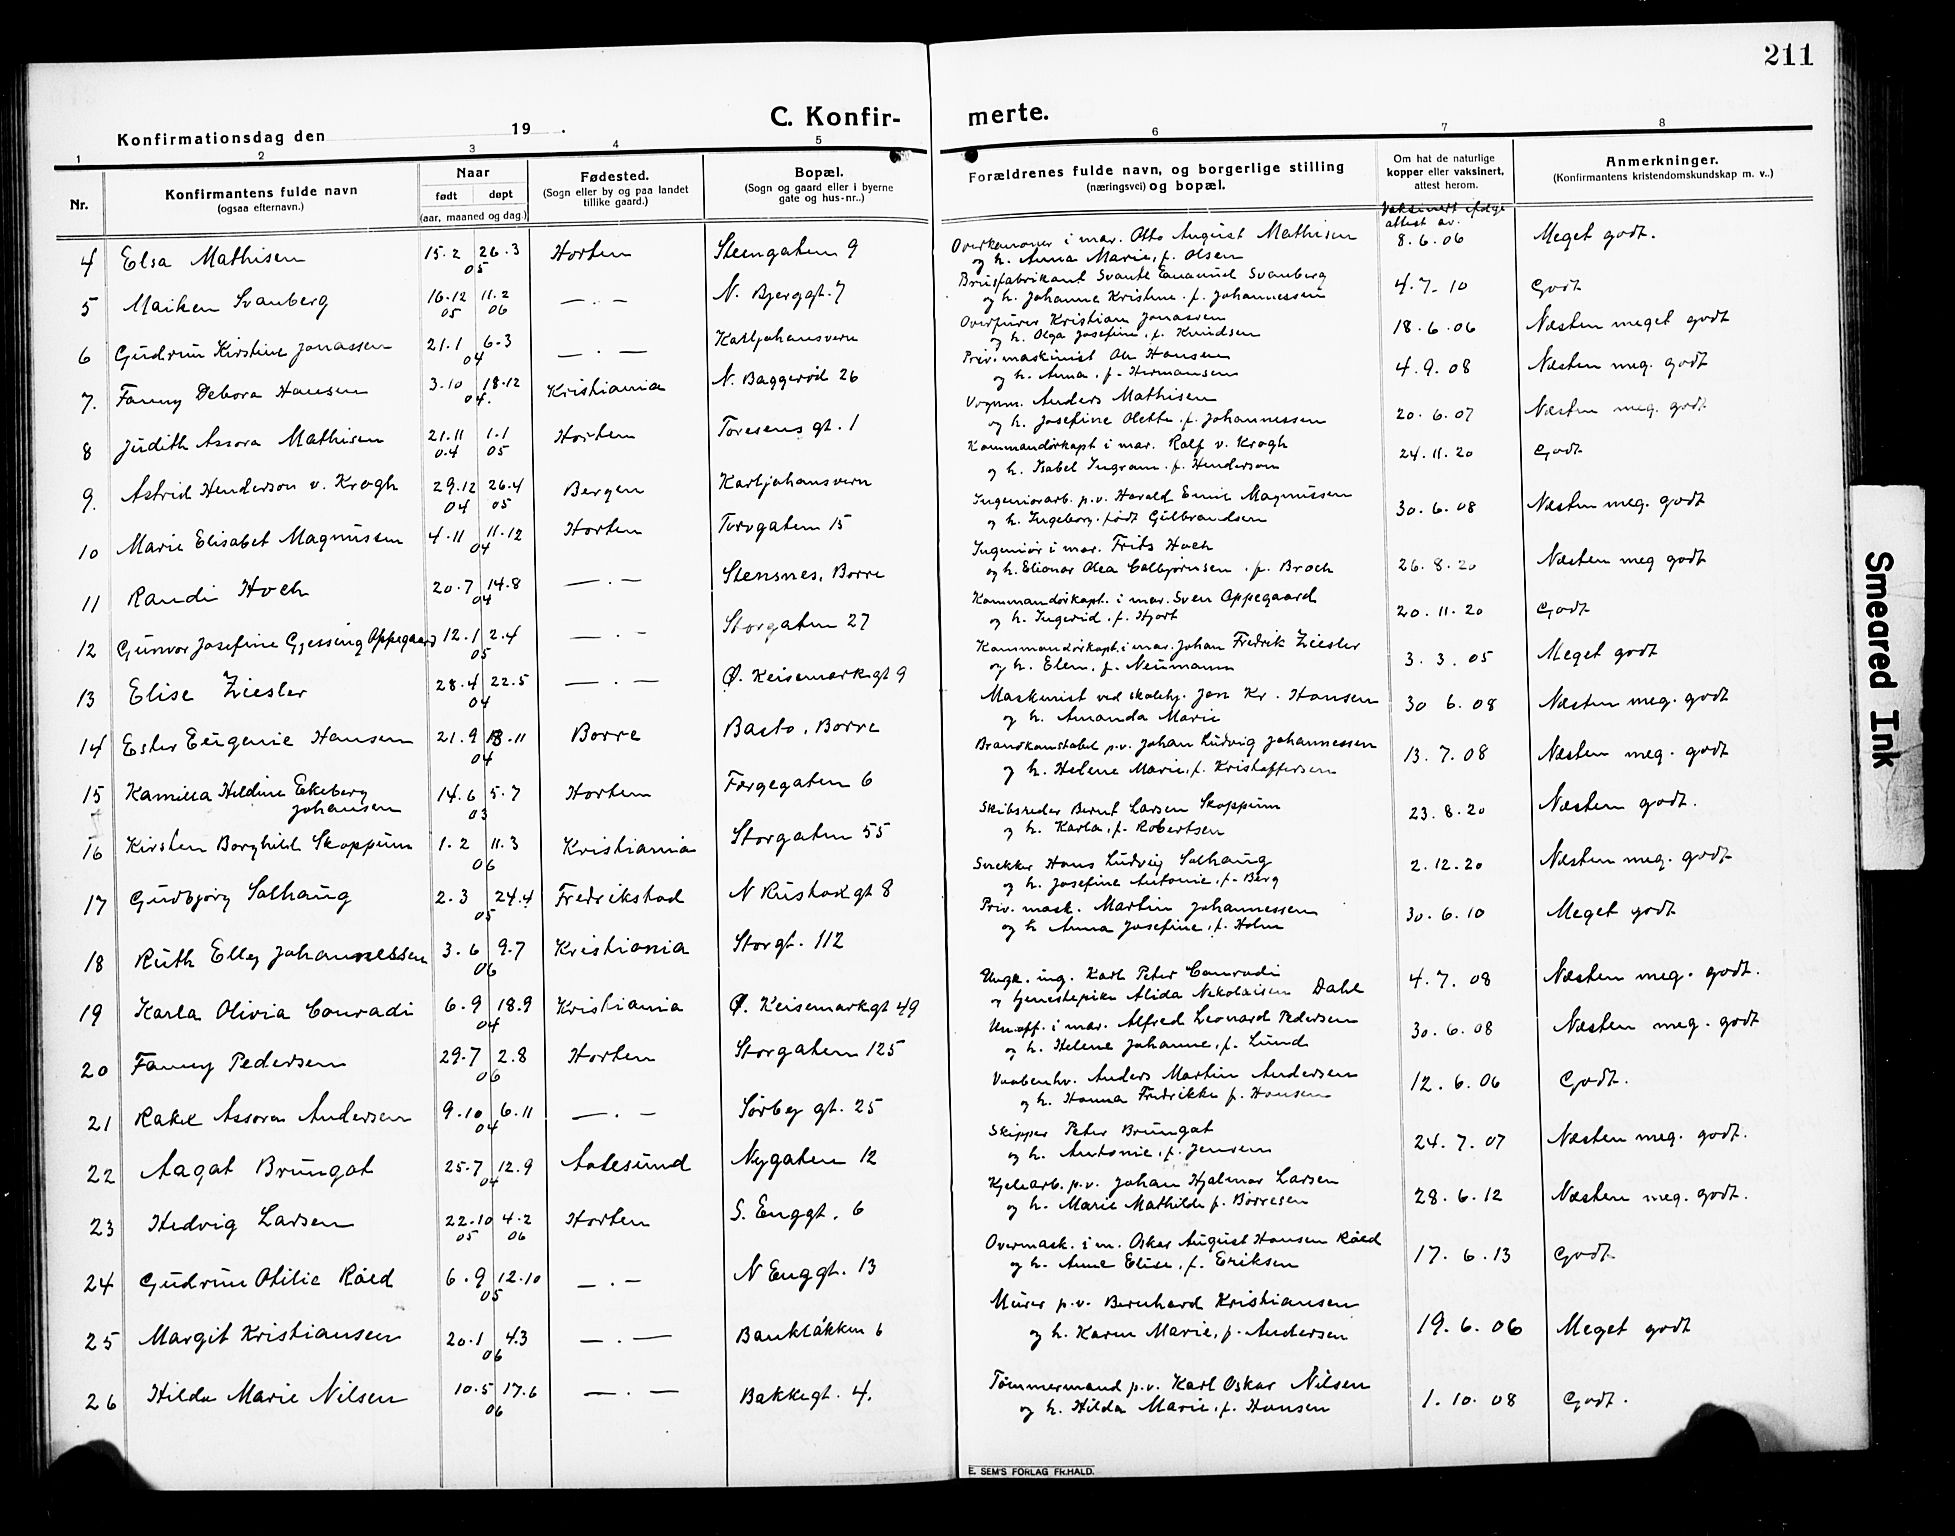 211
C. Konfir- merte.
Konfirmationsdag den 19 .
1 2 3 4 5 6 7 8
Nr. Konfirmantens fulde navn (ogsaa efternavn.) Naar født døpt (aar, maaned og dag.) Fødested. (Sogn eller by og paa landet tillike gaard.) Bopæl. (Sogn og gaard eller i byerne gate og hus-nr..) Forældrenes fulde navn, og borgerlige stilling (næringsvei) og bopæl. Om hat de naturlige kopper eller vaksinert, attest herom. Anmerkninger. (Konfirmantens kristendomskundskap m. v..)
Vaksinert ifølge attest av.
4 Elsa Mathisen 15.2 26.3 05 Horten Steengaten 9 Overkanoner i mar. Otto August Mathisen og h. Anna Marie, f. Olsen 8.6.06 Meget godt.
5 Maiken Svanberg 16.12 05 11.2 06 — . — N. Bjerggt. 7 Brusfabrikant Svante Emanuel Svanberg og h. Johanne Kristine f. Johannessen 4.7.10 Godt
6 Gudrun Kirstine Jonassen 21.1 6.3 04 — . — Karljohansvern Overfurer Kristian Jonassen og h. Olga Josefine, f. Knudsen 18.6.06 Næsten meget godt
7. Fanny Debora Hansen 3.10 18.12 04. Kristiania N. Baggerød 26 Priv. maskinist Ole Hansen og h. Anna, f. Hermansen 4.9.08 Næsten meg. godt
8 Judith Assora Mathisen 21.11 04 1.1 05 Horten Toresens gt. 1 Vognm. Anders Mathisen og h. Josefine Olette f. Johannessen 20.6.07 Næsten meg. godt
9. Astrid Henderson v. Krogh 29.12 04 26.4 05 Bergen Karljohansvern Kommandørkapt i mar. Rolf v. Krogh og h. Isabel Ingram f. Henderson 24.11.20 Godt
10 Marie Elisabet Magnussen 4.11 11.12 04 Horten Torvgaten 15 Ingeniørarb. p.v. Harald Emil Magnussen og h. Ingeborg, født Gulbrandsen 30.6.08 Næsten meg. godt
11 Randi Hoch 20.7 14.8 04 — . — Stensnes, Borre Ingeniør i mar. Frits Hoch og h. Elionor Olea Colbjørnsen, f. Broch 26.8.20 Næsten meg godt
12 Gunvor Josefine Gjessing Oppegaard 12.1 2.4 05 — . — Storgaten 27 Kommandørkapt. i mar. Sven Oppegaard og h. Ingerid, f. Hjort 20.11.20 Godt
13 Elise Ziesler 28.4 22.5 04 — . — Ø. Keisemarkgt 9 Kommandørkapt. i mar. Johan Fredrik Ziesler og h. Elen, f. Neumann 3.3.05 Meget godt
14 Ester Eugenie Hansen 21.9 13.11 04 Borre Basto, Borre Maskinist ved skoleby. Jon Kr. Hansen og h. Amanda Marie 30 6.08 Næsten meg. godt
15 Kamilla Heldine Ekeberg Johansen 14.6 5.7 03 Horten Færgegaten 6 Brandkonstabel p.v. Johan Ludvig Johannessen og h. Helene Marie, f. Kristoffersen 13.7.08 Næsten meg. godt
16 Kirsten Borghild Skoppum 1.2 11.3 06 Kristiania Storgaten 55 Skibsreder Bernt Larsen Skoppum og h. Karla, f. Robertsen 23.8.20 Næsten godt.
17 Gudbjørg Solhaug 2.3 24.4 05 Fredrikstad N Rustadgt 8 Snekker Hans Ludvig Solhaug og h. Josefine Antonie, f. Berg 2.12.20 Næsten meg. godt
18 Ruth Elly Johannessen 3.6 9.7 06 Kristiania Storgt. 112 Priv. mask. Martin Johannessen og h Anna Josefine, f. Holm 30.6.10 Meget godt
19 Karla Olivia Conradi 6.9 18.9 04 Kristiania Ø. Keisemarkgt 49 Ungk. ing. Karl Peter Conradi og tjenestepike Alida Nikolaisen Dahl 4.7.08 Næsten meg. godt.
20 Fanny Pedersen 29.7 2.8 06 Horten Storgaten 125 Unoff. i mar. Alfred Leonard Pedersen og h. Helene Johanne, f. Lund 30.6.08 Næsten meg. godt
21 Rakel Assora Andersen 9.10 6.11 04 — . — Sørby gt. 25 Vaabenhv. Anders Martin Andersen og h. Hanna Fredrikke f. Hansen 12.6.06 Godt.
22 Aagot Brungot 25.7 12.9 04 Aalesund Nygaten 12 Skipper Peter Brungot og h. Antonie, f. Jensen 24.7.07 Næsten meg. godt.
23 Hedvig Larsen 22.10 05 4.2 06 Horten S. Enggt. 6 Kjelearb. p.v. Johan Hjalmar Larsen og h. Marie Mathilde f. Børresen 28.6.12 Næsten meg. godt.
24 Gudrun Otilie Røed 6.9 12.10 05 — . — N Enggt. 13 Overmask. i m. Oskar August Hansen Røed og h. Anne Elise, f. Eriksen 17.6.13 Godt
25 Margit Kristiansen 20.1 4.3 06 — . — Bankløkken 6 Murer p.v. Bernhard Kristiansen og h. Karen Marie, f. Andersen 19.6.06 Meget godt
26 Hilda Marie Nilsen 10.5 17.6 06 — . — Bakkegt. 4. Tømmermand p.v. Karl Oskar Nilsen og h. Hilda Marie, f. Hansen 1.10.08 Godt.
E. SEM'S FORLAG FR.HALD.
Smeared Ink